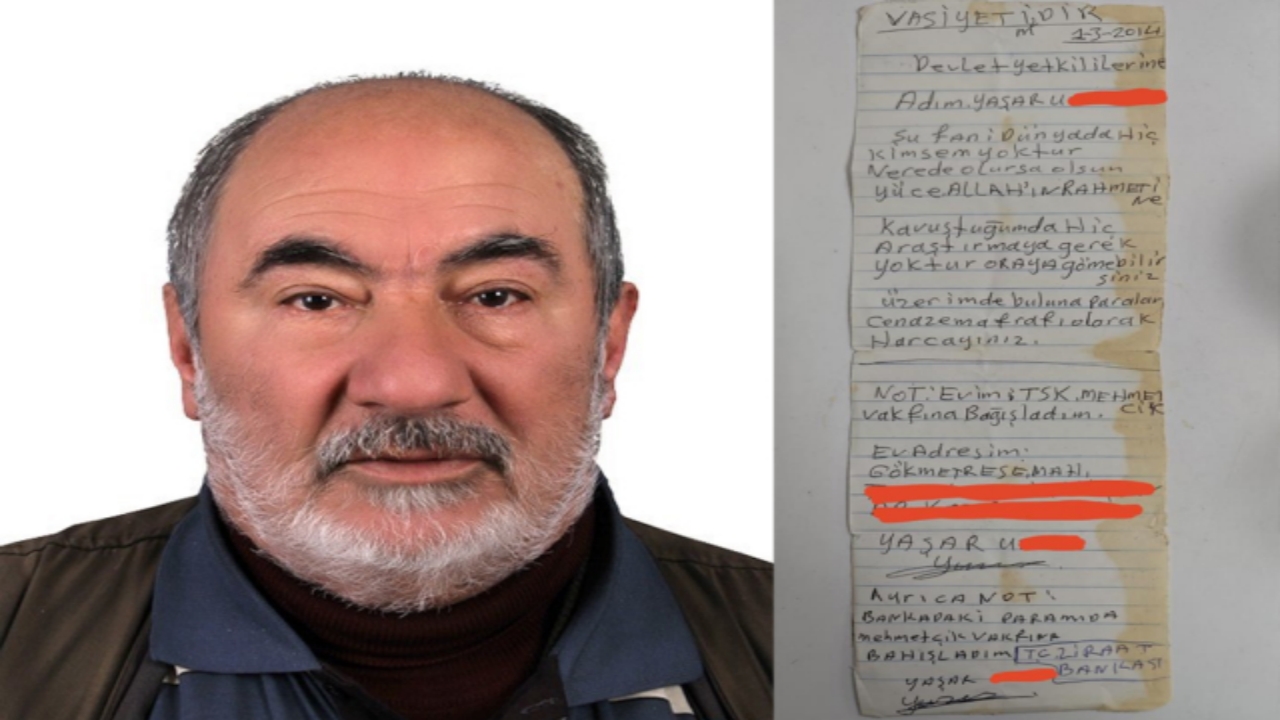 VASİYETİDİR
m
1-3-2014
Devlet yetkililerine
Adım. YAŞAR U
Şu fani Dünyada Hiç
kimsem yoktur
Nerede olursa olsun
yüce ALLAH'IN RAHMETİ
Ne
Kavuştuğumda Hiç
Araştırmaya gerek
yoktur ORAYA gömebilir
siniz
üzerimde buluna paraları
Cenazemafrafı olarak
Harcayınız.
NOT: Evimi TSK. MEHMET
CİK
vakfına Bağışladım.
Ev Adresim:
GÖKMEYRESE. MAH.
YAŞAR U
Ayrıca NOT:
BANKADAKİ PARAMIDA
mehmetçik VAKFINA
BAHIŞLADIM TC ZİRAAT
BANKASI
YAŞAR